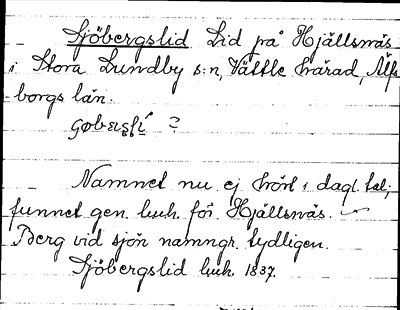 Sjöbergslid Lid på Hjällsnäs
i Stora Lundby s:n, Vättle härad, Älfs
borgs län.
?
Namnet nu ej hört i dagl. tal;
funnet gen. husk. för Hjällsnäs.
Berg vid sjön namngr. tydligen.
Sjöbergslid husk. 1837.